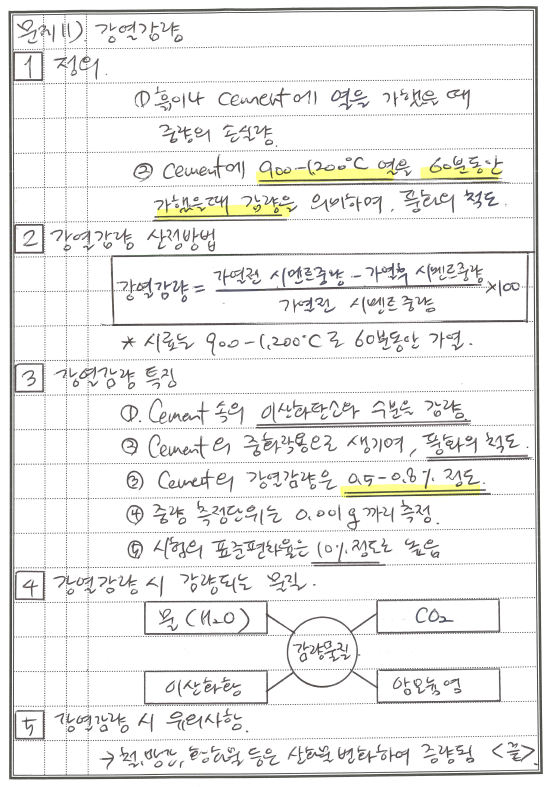 문제 11) 강열감량
1 정의.
① 흙이나 Cement에 열을 가했을 때
중량의 손실량.
② Cement에 900-1,200℃ 열을 60분동안
가했을때 감량을 의미하며, 풍화의 척도.
2 강열감량 산정방법
강열감량 = 가열전 시멘트중량 - 가열후 시멘트중량 / 가열전 시멘트중량 ×100
* 시료는 900-1,200℃로 60분동안 가열.
3 강열감량 특징
①. Cement 속의 이산화탄소와 수분은 감량.
② Cement의 중화작용으로 생기며, 풍화의 척도.
③ Cement의 강열감량은 0.5-0.8% 정도.
④ 중량 측정단위는 0.001g까지 측정.
⑤ 시험의 표준편차율은 10%정도로 높음
4 강열감량 시 감량되는 물질.
물(H2O) CO2
감량물질
이산화황 암모늄염
5 강열감량 시 유의사항.
→ 철, 망간, 황화물 등은 산화물 변화하여 증량됨 <끝>.